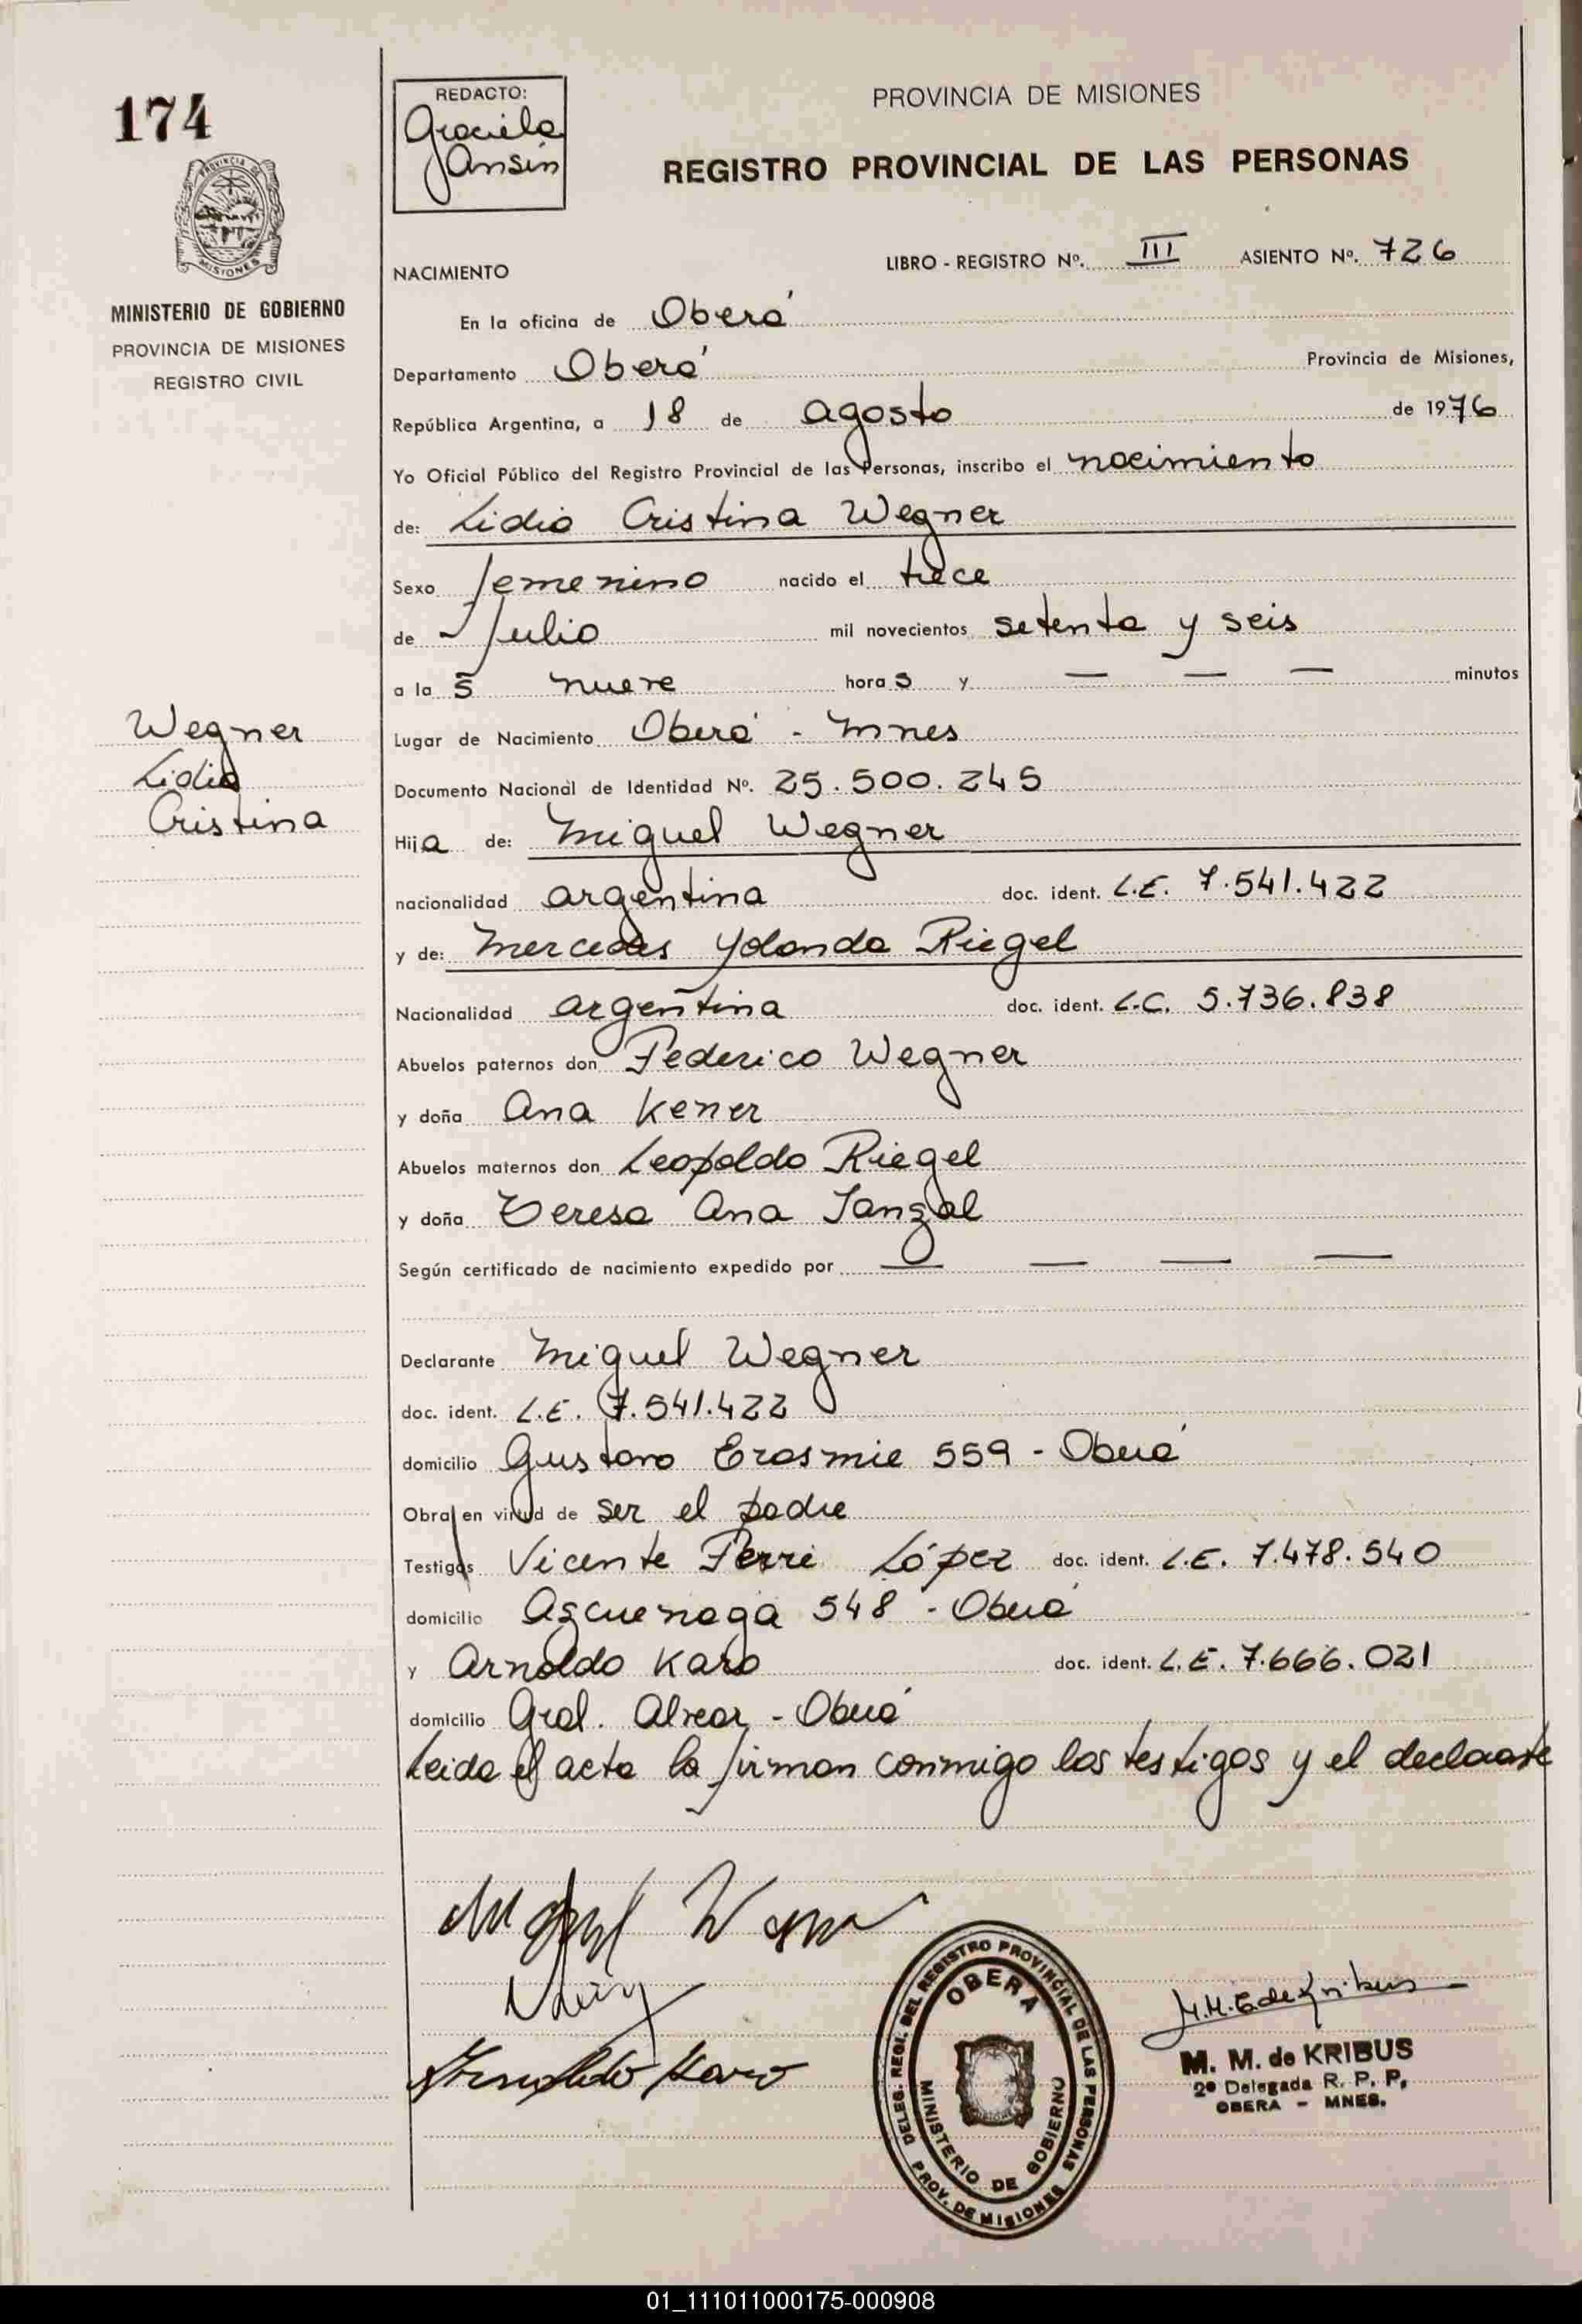 174
REDACTO:
Graciela
Jansin
PROVINCIA DE MISIONES
REGISTRO PROVINCIAL DE LAS PERSONAS
PROVINCIA DE
MISIONES
MINISTERIO DE GOBIERNO
PROVINCIA DE MISIONES
REGISTRO CIVIL
LIBRO - REGISTRO Nº. III ASIENTO Nº. 726
NACIMIENTO
En la oficina de Oberá
Departamento Oberá Provincia de Misiones,
República Argentina, a 18 de agosto de 1976
Yo Oficial Público del Registro Provincial de las Personas, inscribo el nacimiento
de: Lidia Cristina Wegner
Sexo femenino nacido el trece
de Julio mil novecientos setenta y seis
a la s nueve hora s y — — — minutos
Lugar de Nacimiento Oberá - Mnes
Documento Nacional de Identidad Nº. 25.500.245
Wegner
Lidia
Cristina
Hija de: Miguel Wegner
nacionalidad argentina doc. ident. L.E. 7.541.422
y de: Mercedes Yolanda Riegel
Nacionalidad argentina doc. ident. L.C. 5.736.838
Abuelos paternos don Federico Wegner
y doña Ana Kener
Abuelos maternos don Leopoldo Riegel
y doña Teresa Ana Janzal
Según certificado de nacimiento expedido por — — — —
Declarante Miguel Wegner
doc. ident. L.E. 7.541.422
domicilio Gustavo Erasmie 559 - Oberá
Obra en virtud de ser el padre
Testigos Vicente Ferre López doc. ident. L.E. 7.478.540
domicilio Azcuenaga 548 - Oberá
y Arnoldo Karo doc. ident. L.E. 7.666.021
domicilio Gral. Alvear - Oberá
Leida el acta la firman conmigo los testigos y el declarante
Miguel Wegner
Arnoldo Karo
DELEG. REGI. DEL REGISTRO PROVINCIAL DE LAS PERSONAS
OBERA
MINISTERIO DE GOBIERNO
PROV. DE MISIONES
M.M.E de Kribus
M. M. de KRIBUS
2º Delegada R. P. P.
OBERA - MNES.
01_111011000175-000908